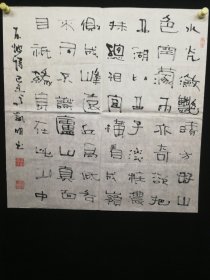 水光瀲灩晴方好山
色空濛雨亦奇欲把
西湖比西子淡妝濃
抹總相宜橫看成嶺
側成峰遠近高低各
不同不識廬山真面
目只緣身在此山中